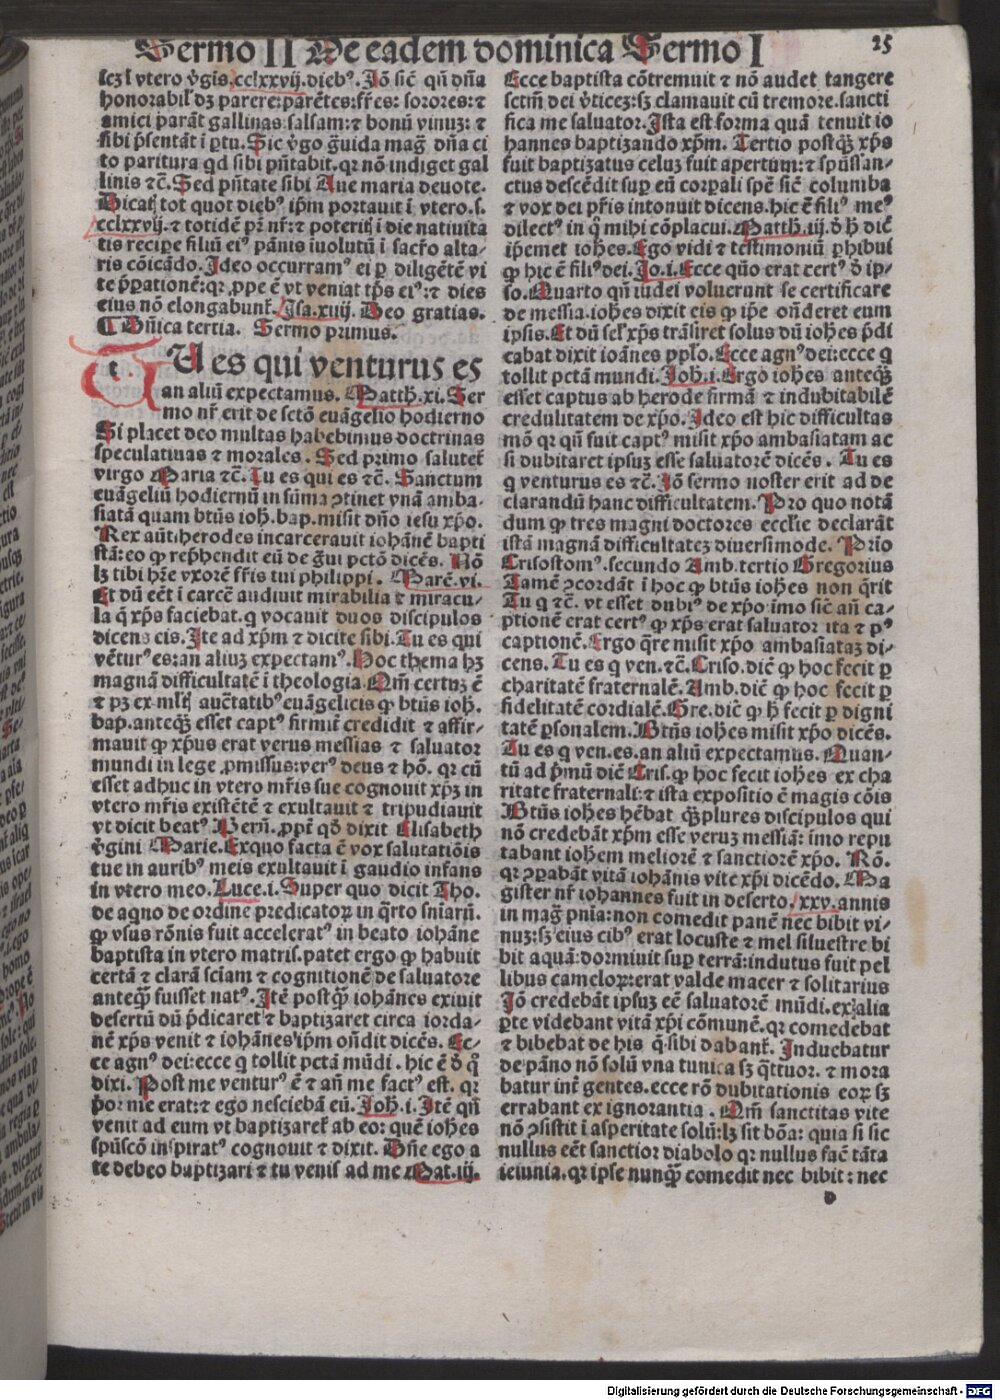 Sermo II De eadem dominica Sermo I
25
lcꝫ ĩ vtero v̾gis.cclxxvij.dieb⁹. Iõ sic̃ qñ dña
honorabil̃ dꝫ parere: parẽtes: fr̃es: sorores: ⁊
amici parãt gallinas: salsam: ⁊ bonũ vinuꝫ: ⁊
sibi p̃sentãt ĩ ꝑtu. Sic v̾go g̃uida mag̃ dña ci
to paritura qd sibi pñtabit. qꝛ nõ indiget gal
linis ⁊c̃. Sed pñtate sibi Aue maria deuote.
Dicat̃ tot quot dieb⁹ ip̃m portauit ĩ vtero. s.
cclxxvij. ⁊ totidẽ pr̃ nr̃: ⁊ poterit̃ ĩ die natiuita
tis recipe filiũ ei⁹ pãnis ĩuolutũ ĩ sacr̃o alta/
ris cõicãdo. Ideo occurram⁹ ei ꝑ diligẽtẽ vi
te p̃ꝑationẽ: qꝛ ꝓpe ẽ vt veniat tp̃s ei⁹: ⁊ dies
eius nõ elongabunt̃. Isa.xiiij. Deo gratias.
¶ Dñica tertia. Sermo primus.
TU es qui venturus es
an aliũ expectamus. Matth.xi. Ser
mo nr̃ erit de sctõ euãgelio hodierno
Si placet deo multas habebimus doctrinas
speculatiuas ⁊ morales. Sed primo salutet̃
virgo Maria ⁊c̃. Tu es qui es ⁊c̃. Sanctum
euãgeliũ hodiernũ in sũma ꝯtinet vnã amba/
siatã quam btũs ioh̃. bap. misit dño iesu xp̃o.
Rex aũt herodes incarcerauit iohãnẽ bapti
stã: eo ꝙ rep̃hendit eũ de g̃ui pctõ dicẽs. Nõ
lꝫ tibi hr̃e vxorẽ fr̃is tui philippi. Marc̃.vi.
Et dũ eẽt ĩ carcẽ audiuit mirabilia ⁊ miracu/
la q̃ xp̃s faciebat. q̃ vocauit duos discipulos
dicens eis. Ite ad xp̃m ⁊ dicite sibi. Tu es qui
vẽtur⁹ es: an aliuꝫ expectam⁹. Hoc thema hꝫ
magnã difficultatẽ ĩ theologia. Qm̃ certuꝫ ẽ
⁊ pꝫ ex ml̃t̃ auc̃tatib⁹ euãgelicis ꝙ btũs ioh̃.
bap. anteq̃ꝫ esset capt⁹ firmiẽ credidit ⁊ affir/
mauit ꝙ xp̃us erat verus messias ⁊ saluator
mundi in lege ꝓmissus: ver⁹ deus ⁊ hõ. qꝛ cũ
esset adhuc in vtero mr̃is sue cognouit xp̃ꝫ in
vtero mr̃is existẽtẽ ⁊ exultauit ⁊ tripudiauit
vt dicit beat⁹ Berñ. ꝓpt̃ qd̾ dixit Elisabeth
v̾gini Marie. Exquo facta ẽ vox salutatiõis
tue in aurib⁹ meis exultauit ĩ gaudio infans
in vtero meo. Luce.i. Super quo dicit Tho.
de aqno de ordine predicatoꝝ in q̃rto sniarũ.
ꝙ vsus rõnis fuit accelerat⁹ in beato iohãne
baptista in vtero matris. patet ergo ꝙ habuit
certã ⁊ clarã sciam ⁊ cognitionẽ de saluatore
anteq̃ꝫ fuisset nat⁹. Itẽ postq̃ꝫ iohãnes exiuit
desertũ dũ p̃dicaret ⁊ baptizaret circa iorda/
nẽ xp̃s venit ⁊ iohãnes ip̃m oñdit dicẽs. Ec/
ce agn⁹ dei: ecce q̃ tollit pctã mũdi. hic ẽ d̾ q̊
dixi. Post me ventur⁹ ẽ ⁊ añ me fact⁹ est. qꝛ
p̾or me erat: ⁊ ego nesciebã eũ. Joh̃.i. Itẽ qñ
venit ad eum vt baptizaret̃ ab eo: quẽ iohẽs
spũscõ inspirat⁹ cognouit ⁊ dixit. Dñe ego a
te debeo baptizari ⁊ tu venis ad me Mat.iij.
Ecce baptista cõtremuit ⁊ nõ audet tangere
sctm̃ dei v̾ticeꝫ: sꝫ clamauit cũ tremore. sancti
fica me saluator. Ista est forma quã tenuit io
hannes baptizando xp̃m. Tertio postq̃ꝫ xp̃s
fuit baptizatus celuꝫ fuit apertum: ⁊ spũssan/
ctus descẽdit sup eũ corꝑali spẽ sic̃ columba
⁊ vox dei pr̃is intonuit dicens. hic ẽ fili⁹ me⁹
dilect⁹ in q̊ mihi cõplacui. Matth.iij. d̾ h̃ dic̃
ip̃emet ioh̃es. Ego vidi ⁊ testimoniũ ꝑhibui
ꝙ hic ẽ fili⁹ dei. Jo.i. Ecce qũo erat cert⁹ d̾ ip/
so. Quarto qñ iudei voluerunt se certificare
de messia. iohẽs dixit eis ꝙ ip̃e oñderet eum
ipsis. Et dũ sel̃ xp̃s trãsiret solus dũ ioh̃es p̃di
cabat dixit ioãnes pplo. Ecce agn⁹ dei: ecce q̃
tollit pctã mundi. Joh̃.i. Ergo ioh̃es anteq̃ꝫ
esset captus ab herode firmã ⁊ indubitabilẽ
credulitatem de xp̃o. Ideo est hic difficultas
mõ qꝛ qũ fuit capt⁹ misit xp̃o ambasiatam ac
si dubitaret ipsuꝫ esse saluatorẽ dicẽs. Tu es
q̃ venturus es ⁊c̃. Iõ sermo noster erit ad de
clarandũ hanc difficultatem. Pro quo notã
dum ꝙ tres magni doctores eccl̃ie declarãt
istã magnã difficultateꝫ diuersimode. Prĩo
Crisostom⁹. secundo Amb. tertio Gregorius
Tamẽ ꝯcordãt ĩ hoc ꝙ btũs ioh̃es non q̃rit
Tu q̃ ⁊c̃. vt esset dubi⁹ de xp̃o: imo sic̃ añ ca/
ptionẽ erat cert⁹ ꝙ xp̃s erat saluator ita ⁊ p⁹
captionẽ. Ergo q̃re misit xp̃o ambasiataꝫ di/
cens. Tu es q̃ ven. ⁊c̃. Criso. dic̃ ꝙ hoc fecit ꝑ
charitatẽ fraternalẽ. Amb. dic̃ ꝙ hoc fecit ꝑ
fidelitatẽ cordialẽ. Gre. dic̃ ꝙ h̃ fecit ꝑ digni
tatẽ ꝑsonalem. Btũs iohes misit xp̃o dicẽs.
Tu es q̃ ven. es. an aliũ expectamus. Quan/
tũ ad p̃mũ dic̃ Cris. ꝙ hoc fecit ioh̃es ex cha
ritate fraternali: ⁊ ista expositio ẽ magis cõis
Btũs ioh̃es hẽbat q̃ꝫplures discipulos qui
nõ credebãt xp̃m esse veruꝫ messiã: imo repu
tabant iohem meliorẽ ⁊ sanctiorẽ xp̃o. Rõ.
qꝛ ꝓꝑabãt vitã iohãnis vite xp̃i dicẽdo. Ma
gister nr̃ iohannes fuit in deserto. xxv. annis
in mag̃ pnĩa: non comedit panẽ nec bibit vi/
nuꝫ: sꝫ eius cib⁹ erat locuste ⁊ mel siluestre bi
bit aquã: dormiuit suꝑ terrã: indutus fuit pel
libus cameloꝝ: erat valde macer ⁊ solitarius
Iõ credebãt ipsuꝫ eẽ saluatorẽ mũdi. ex alia
ꝑte videbant vitã xp̃i cõmunẽ. qꝛ comedebat
⁊ bibebat de his q̃ sibi dabant̃. Induebatur
de pãno nõ solũ vna tunica sꝫ q̃ttuor. ⁊ mora
batur int̃ gentes. ecce rõ dubitationis eoꝝ sꝫ
errabant ex ignorantia. Qm̃ sanctitas vite
nõ ꝯsistit ĩ asperitate solũ: lꝫ sit bõa: quia si sic
nullus eẽt sanctior diabolo qꝛ nullus fac̃ tãta
ieiunia. qꝛ ipse nunq̃ꝫ comedit nec bibit: nec
d
Digitalisierung gefördert durch die Deutsche Forschungsgemeinschaft - DFG